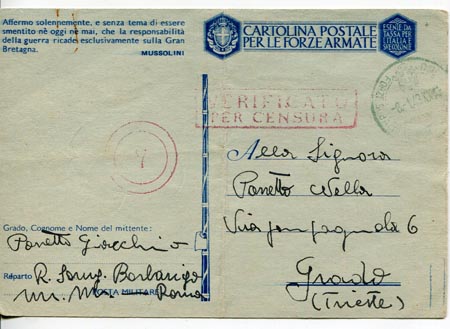 Affermo solennemente, e senza tema di essere
smentito nè oggi nè mai, che la responsabilità
della guerra ricade esclusivamente sulla Gran
Bretagna.
MUSSOLINI
CARTOLINA POSTALE
PER LE FORZE ARMATE
ESENTE DA
TASSA PER
L'ITALIA E
SPEDIZIONE
VERIFICATO
PER CENSURA
7
Alla Signora
Panetto Nella
Via 6
Grado
(Trieste)
Grado, Cognome e Nome del mittente:
Panetto
Reparto R. Barbarigo
POSTA MILITARE Roma